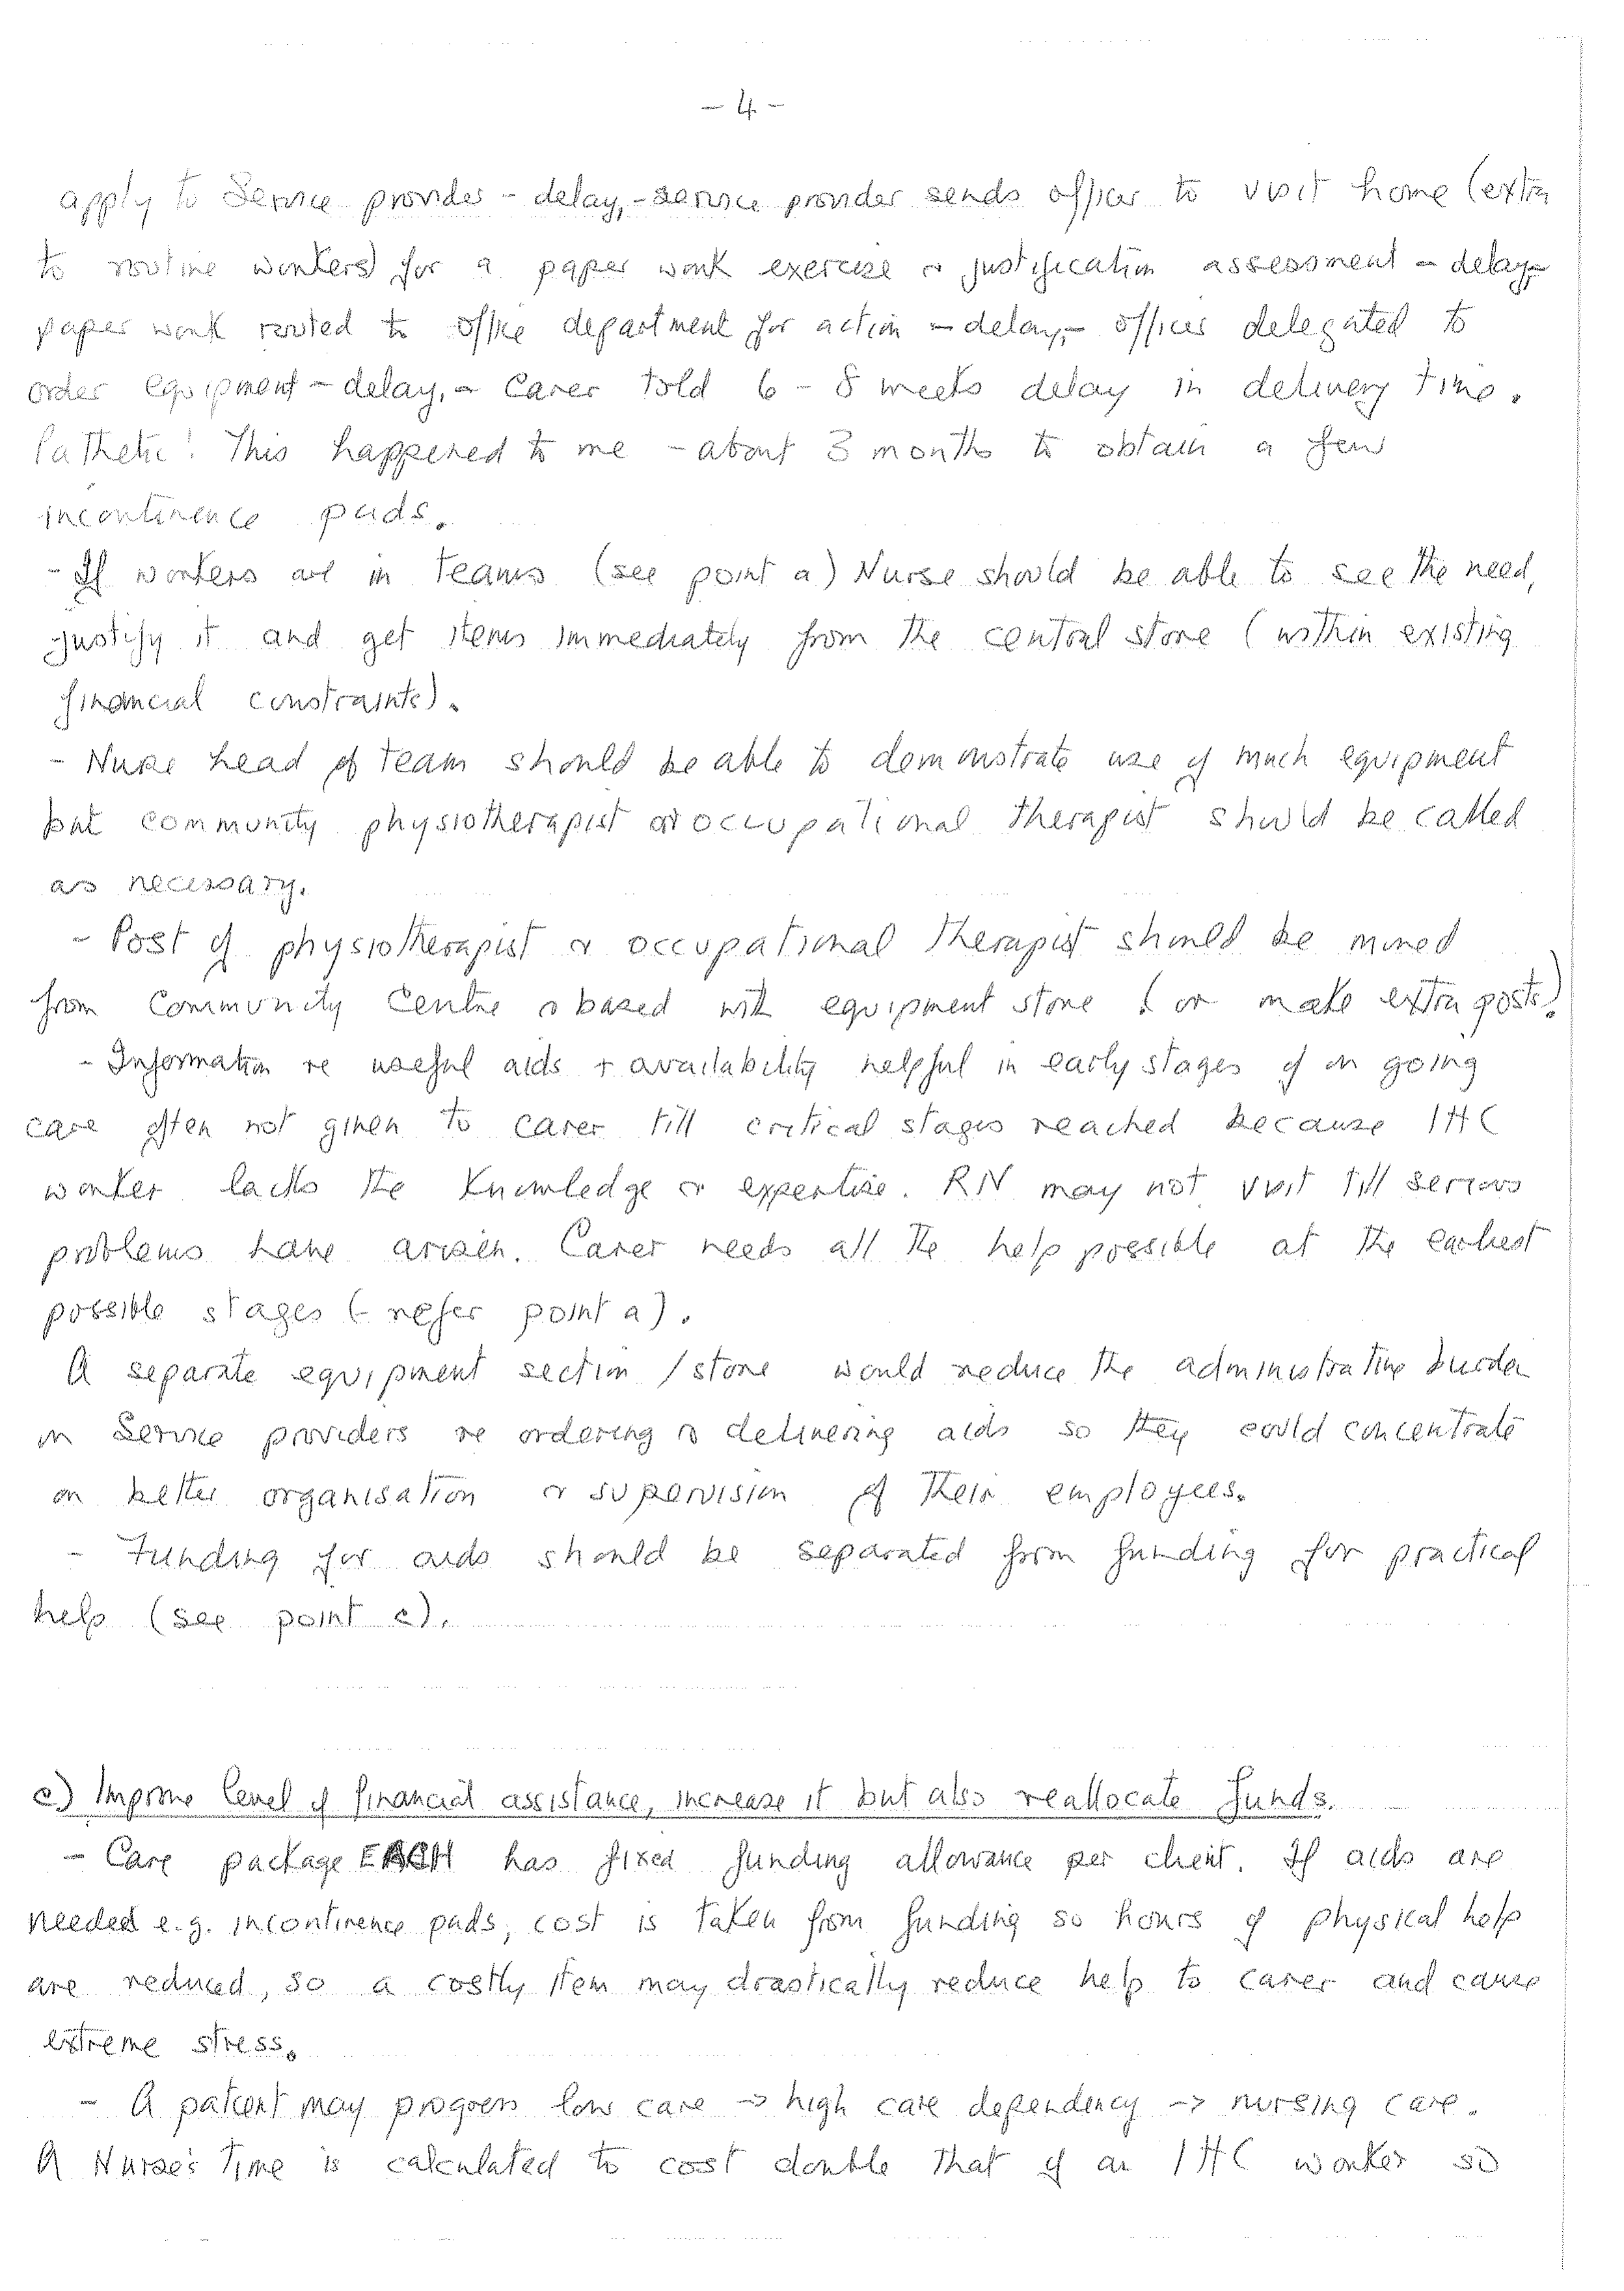 - 4 -
apply to Service provider - delay, - service provider sends officer to visit home (extra
to routine workers) for a paper work exercise & justification assessment - delay -
paper work routed to office department for action - delay, - officer delegated to
order equipment - delay, - Carer told 6 - 8 weeks delay in delivery time.
Pathetic! This happened to me - about 3 months to obtain a few
incontinence pads.
- If workers are in teams (see point a) Nurse should be able to see the need,
justify it and get items immediately from the central store (within existing
financial constraints).
- Nurse head of team should be able to demonstrate use of much equipment
but community physiotherapist or occupational therapist should be called
as necessary.
- Post of physiotherapist & occupational therapist should be moved
from Community Centre & based with equipment store (or make extra posts)
- Information re useful aids + availability helpful in early stages of on going
care often not given to carer till critical stages reached because IHC
worker lacks the knowledge or expertise. RN may not visit till serious
problems have arisen. Carer needs all the help possible at the earliest
possible stages (- refer point a).
A separate equipment section / store would reduce the administrative burden
on Service providers re ordering & delivering aids so they could concentrate
on better organisation & supervision of their employees.
- Funding for aids should be separated from funding for practical
help (see point c).
c) Improve level of financial assistance, increase it but also reallocate funds.
- Care package EACH has fixed funding allowance per client. If aids are
needed e.g. incontinence pads, cost is taken from funding so hours of physical help
are reduced, so a costly item may drastically reduce help to carer and cause
extreme stress.
- A patient may progress low care -> high care dependency -> nursing care.
A Nurse's time is calculated to cost double that of an IHC worker so